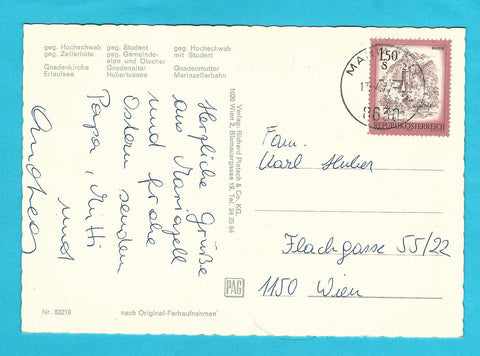 geg. Hochschwab
geg. Zellerhüte
geg. Student
geg. Gemeinde-
alpe und Ötscher
geg. Hochschwab
mit Student
Gnadenkirche
Erlaufsee
Gnadenaltar
Hubertussee
Gnadenmutter
Mariazellerbahn
Herzliche Grüße
aus Mariazell
und frohe
Ostern senden
Papa, Mitti
und
Andrea
Verlag: Richard Pietsch & Co. KG.
1020 Wien 2, Blumauergasse 19, Tel. 24 25 84
PAG
Nr. 82219
nach Original-Farbaufnahmen
1.50
S
REPUBLIK ÖSTERREICH
8630
Fam.
Karl Huber
Flachgasse 55/22
1150 Wien